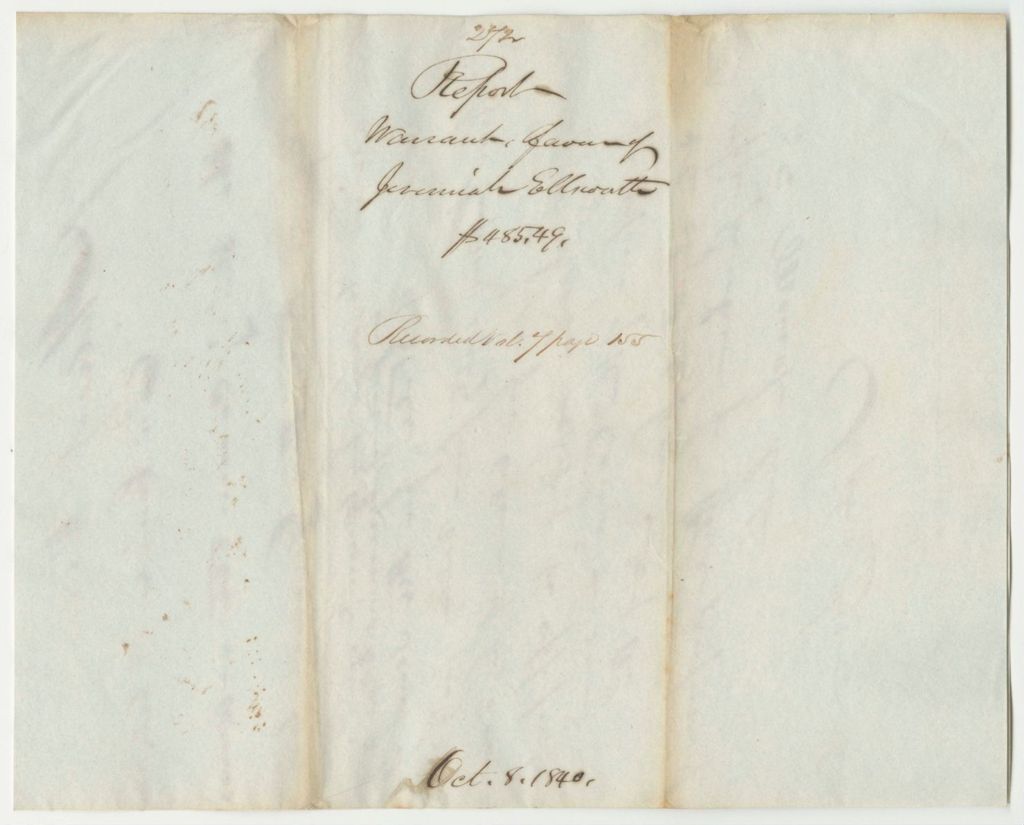 272
Report
Warrant, favour of
Jeremiah Ellsworth
$485.49.
Recorded Vol. 7 page 155
Oct. 8. 1840.